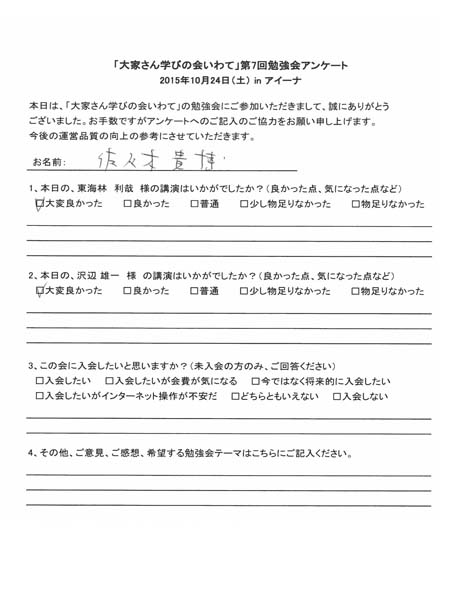 「大家さん学びの会いわて」第7回勉強会アンケート
2015年10月24日(土) in アイーナ
本日は、「大家さん学びの会いわて」の勉強会にご参加いただきまして、誠にありがとう
ございました。お手数ですがアンケートへのご記入のご協力をお願い申し上げます。
今後の運営品質の向上の参考にさせていただきます。
お名前: 佐々木 貴博
1、本日の、東海林 利哉 様の講演はいかがでしたか?(良かった点、気になった点など)
□大変良かった □良かった □普通 □少し物足りなかった □物足りなかった
2、本日の、沢辺 雄一 様 の講演はいかがでしたか?(良かった点、気になった点など)
□大変良かった □良かった □普通 □少し物足りなかった □物足りなかった
3、この会に入会したいと思いますか?(未入会の方のみ、ご回答ください)
□入会したい □入会したいが会費が気になる □今ではなく将来的に入会したい
□入会したいがインターネット操作が不安だ □どちらともいえない □入会しない
4、その他、ご意見、ご感想、希望する勉強会テーマはこちらにご記入ください。